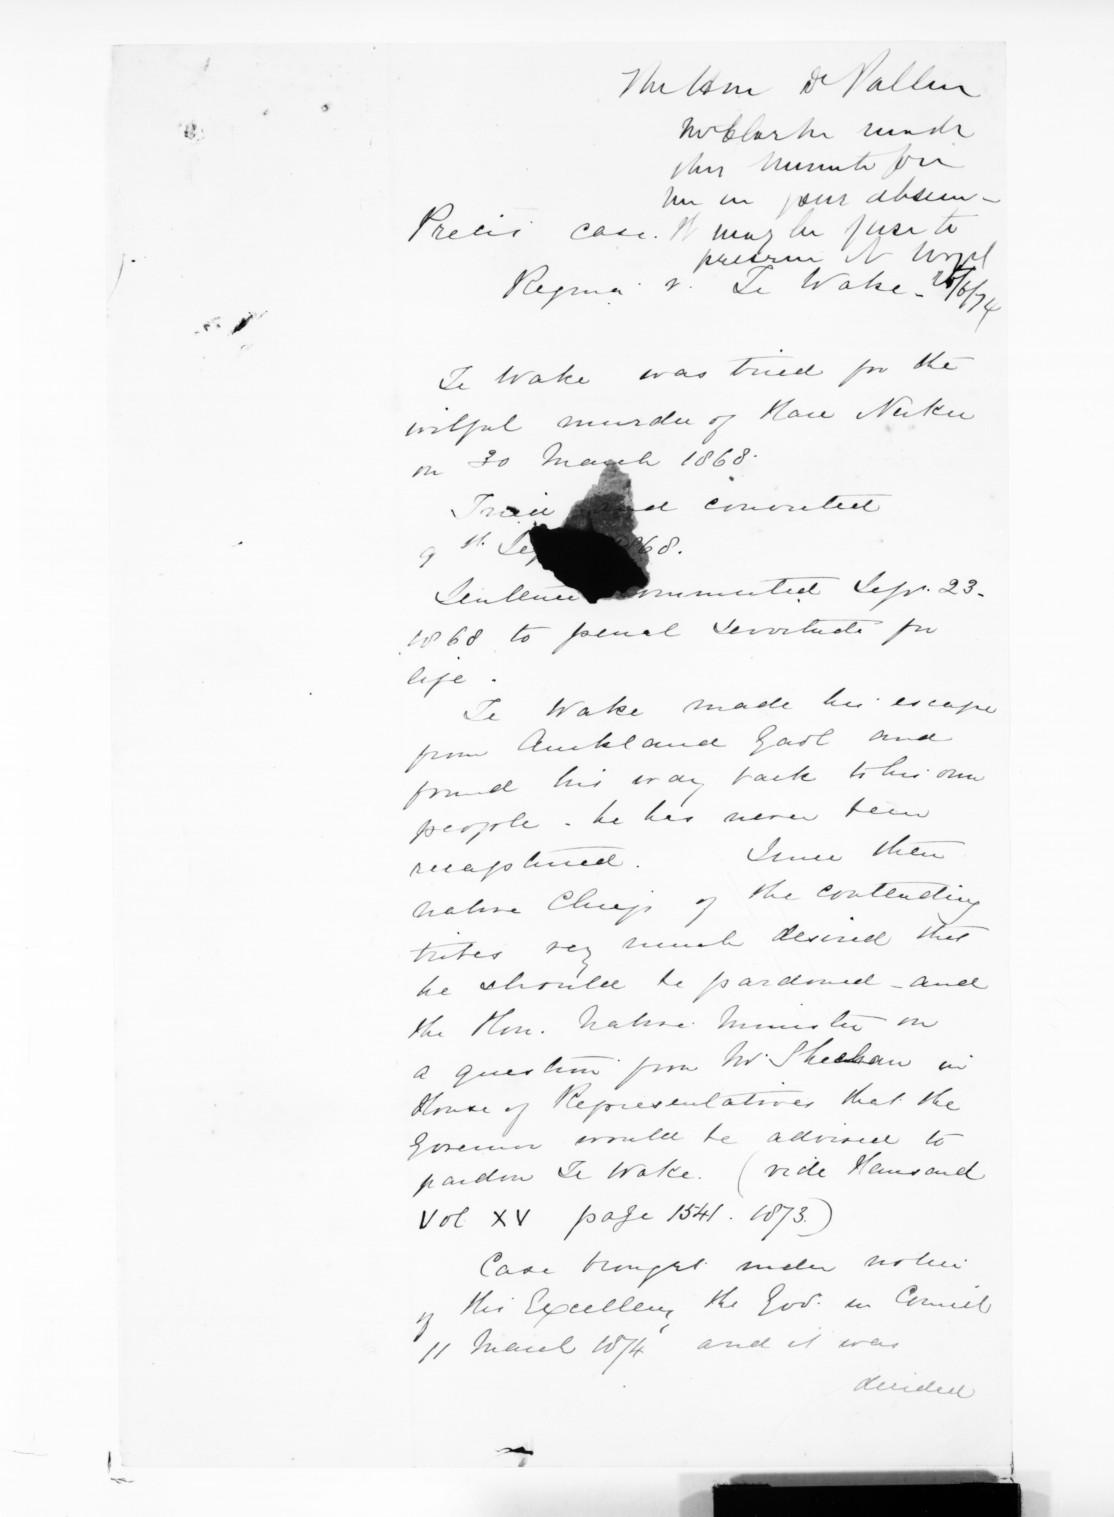 The Hon Dr Pollen
Mr Clarke made
this minute for
me in your absence
It may be just to
preserve it
26/6/74
Precis case.
Regina v. Te Wake.
Te Wake was tried for the
wilful murder of Hare Nuku
on 30 March 1868.
Tried and convicted
9th Sep 1868.
Sentence commuted Sepr. 23.
1868 to penal servitude for
life.
Te Wake made his escape
from Auckland Gaol and
found his way back to his own
people. he has never been
recaptured. Since then
native Chiefs of the contending
tribes very much desired that
he should be pardoned - and
the Hon. Native Minister on
a question from Mr. Sheehan in
House of Representatives that the
Governor would be advised to
pardon Te Wake. (vide Hansard
Vol XV page 1541. 1873.)
Case brought under notice
of His Excellency the Gov. in Council
11 March 1874 and it was
decided